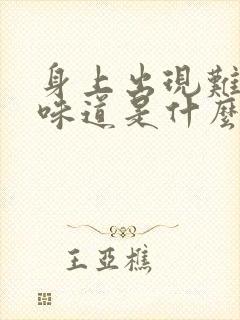 身上出現難
味道是什麼
王亞樵